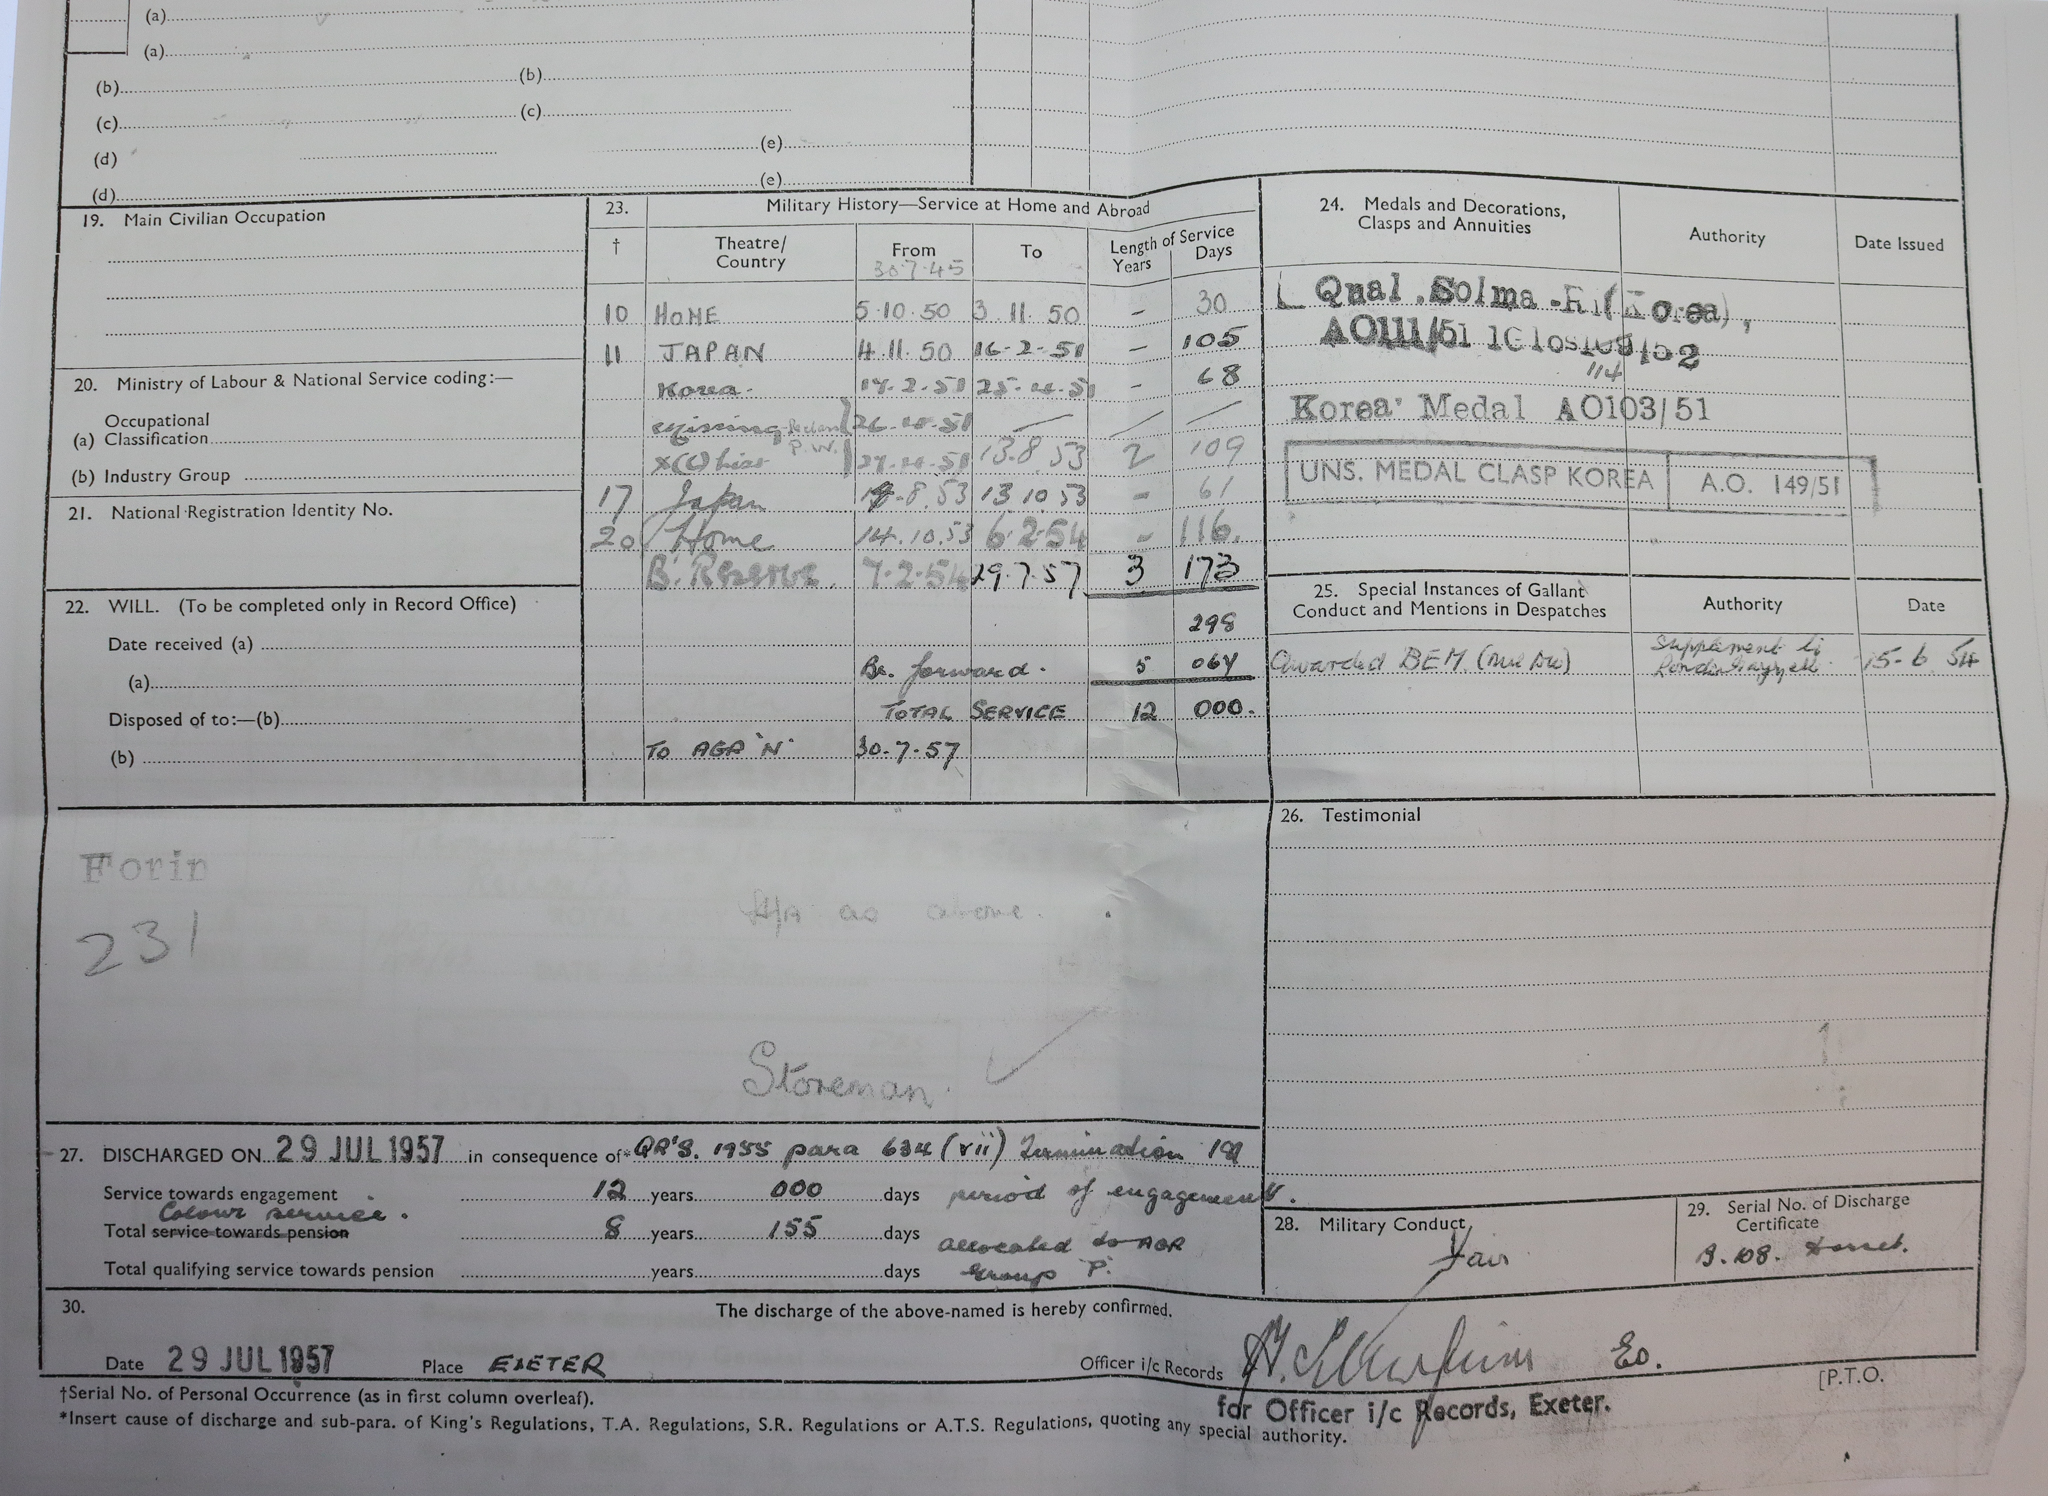 (a)
(a)
(b) (b)
(c) (c)
(d) (e)
(d) (e)
19. Main Civilian Occupation
20. Ministry of Labour & National Service coding:—
Occupational
(a) Classification
(b) Industry Group
21. National Registration Identity No.
22. WILL. (To be completed only in Record Office)
Date received (a)
(a)
Disposed of to:—(b)
(b)
23. Military History—Service at Home and Abroad
† Theatre/ Country From To Length of Service Years Days
30.7.45
10 HOME 5.10.50 3.11.50 - 30
11 JAPAN 4.11.50 16-2-51 - 105
Korea. 17.2.51 25-4-51 - 68
Missing 26-4-51
P.W. 27-4-51 13.8.53 2 109
17 Japan 14-8.53 13.10.53 - 61
20 Home 14.10.53 6.2.54 - 116.
B. Reserve. 7.2.54 29.7.57 3 173
298
Br. forward. 5 067
TOTAL SERVICE 12 000.
TO AGR 'N' 30.7.57
24. Medals and Decorations,
Clasps and Annuities Authority Date Issued
Qual. (Korea),
AO111/51
114
Korea Medal AO103/51
UNS. MEDAL CLASP KOREA A.O. 149/51
25. Special Instances of Gallant
Conduct and Mentions in Despatches Authority Date
Awarded BEM. (Mil Div) Supplement to London Gazette 15-6 54
26. Testimonial
231
as above.
Storeman.
27. DISCHARGED ON 29 JUL 1957 in consequence of* QR'S. 1955 para 634 (vii) Termination 1st
Service towards engagement 12 years 000 days period of engagement.
Colour service.
Total service towards pension 8 years 155 days allocated to AGR
Total qualifying service towards pension years days Group P.
28. Military Conduct
Fair
29. Serial No. of Discharge
Certificate
B.108. Dorset.
30. The discharge of the above-named is hereby confirmed.
Date 29 JUL 1957 Place EXETER Officer i/c Records
for Officer i/c Records, Exeter.
[P.T.O.
†Serial No. of Personal Occurrence (as in first column overleaf).
*Insert cause of discharge and sub-para. of King's Regulations, T.A. Regulations, S.R. Regulations or A.T.S. Regulations, quoting any special authority.